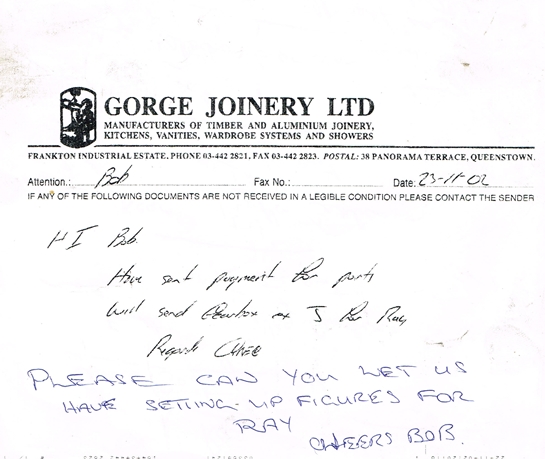 GORGE JOINERY LTD
MANUFACTURERS OF TIMBER AND ALUMINIUM JOINERY,
KITCHENS, VANITIES, WARDROBE SYSTEMS AND SHOWERS
FRANKTON INDUSTRIAL ESTATE. PHONE 03-442 2821, FAX 03-442 2823. POSTAL: 38 PANORAMA TERRACE, QUEENSTOWN.
Attention.: Bob Fax No.: Date: 23-11-02
IF ANY OF THE FOLLOWING DOCUMENTS ARE NOT RECEIVED IN A LEGIBLE CONDITION PLEASE CONTACT THE SENDER
HI Bob.
Have sent payment for parts
Will send Gearbox ex J for Ray
Regards
PLEASE CAN YOU LET US
HAVE SETTING-UP FIGURES FOR
RAY
CHEERS BOB.